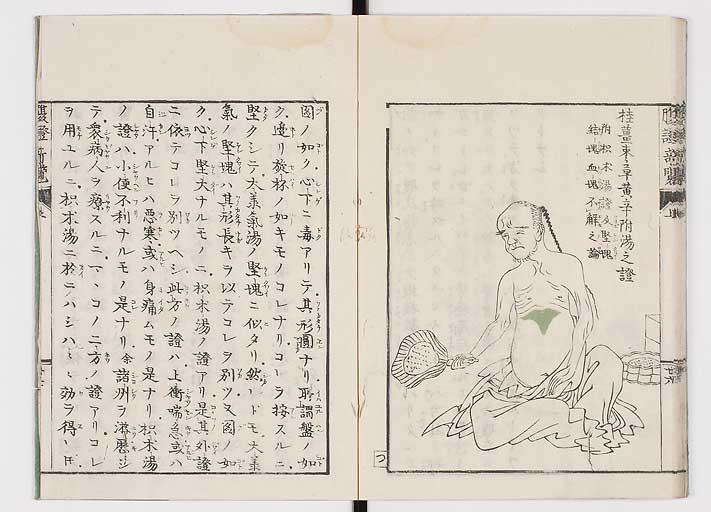 腹證前覽
桂薑棗草黄辛附湯之證
附枳朮湯證及堅塊
結塊血塊不解之論
圖ノ如ク心下ニ毒アリテ其形圓ナリ所謂盤ノ如
ク邊リ旋杯ノ如キモノコレナリコレヲ按スルニ
堅クシテ大柴氣湯ノ堅塊ニ似タリ然レドモ大柴
氣ノ堅塊ハ其形長キヲ以テコレヲ別ツ又圖ノ如
ク心下堅大ナルモノニ枳朮湯ノ證アリ是其外證
ニ依テコレヲ別ツヘシ此方ノ證ハ上衝喘急或ハ
自汗アルヒハ悪寒或ハ身痛ムモノ是ナリ枳朮湯
ノ證ハ小便不利ナルモノ是ナリ余諸州ヲ遊歴シ
テ衆病人ヲ療スルニマヽコノ二方ノ證アリコレ
ヲ用ユルニ枳朮湯ニ於テハシハ〳〵効ヲ得レドモ